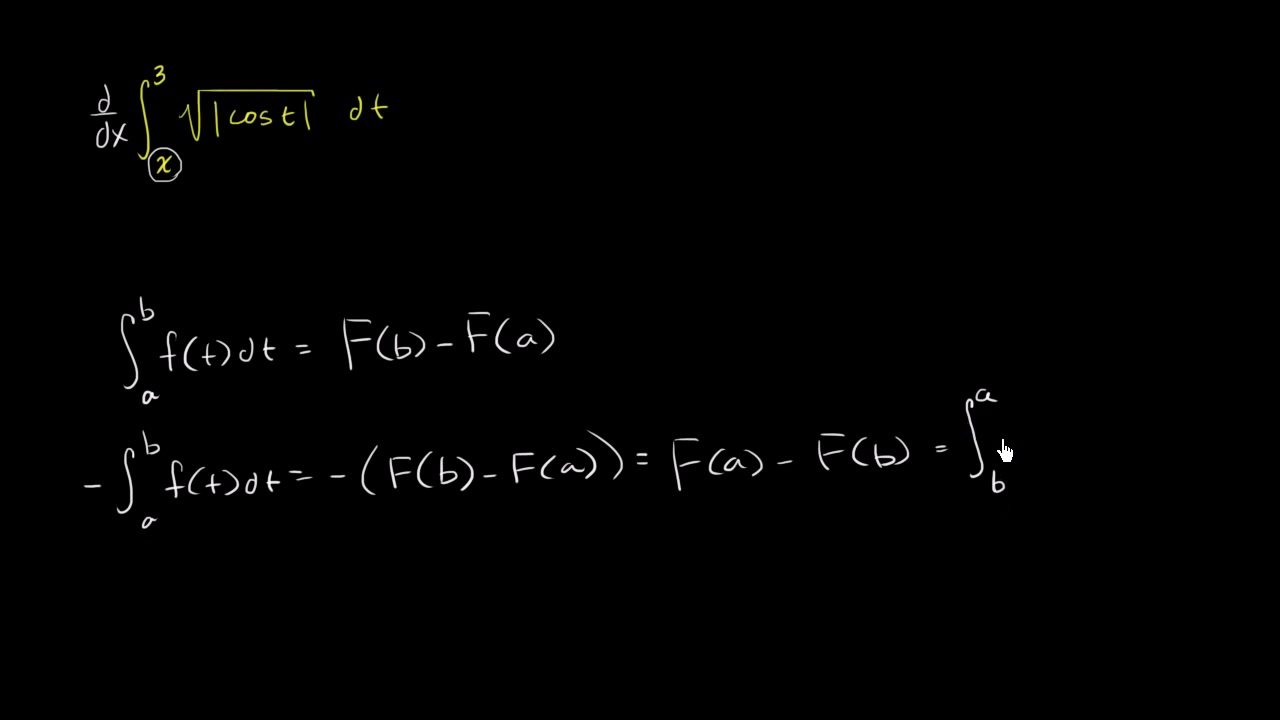 d/dx ∫_x^3 √|cos t| dt
∫_a^b f(t)dt = F(b) - F(a)
- ∫_a^b f(t)dt = - (F(b) - F(a)) = F(a) - F(b) = ∫_b^a